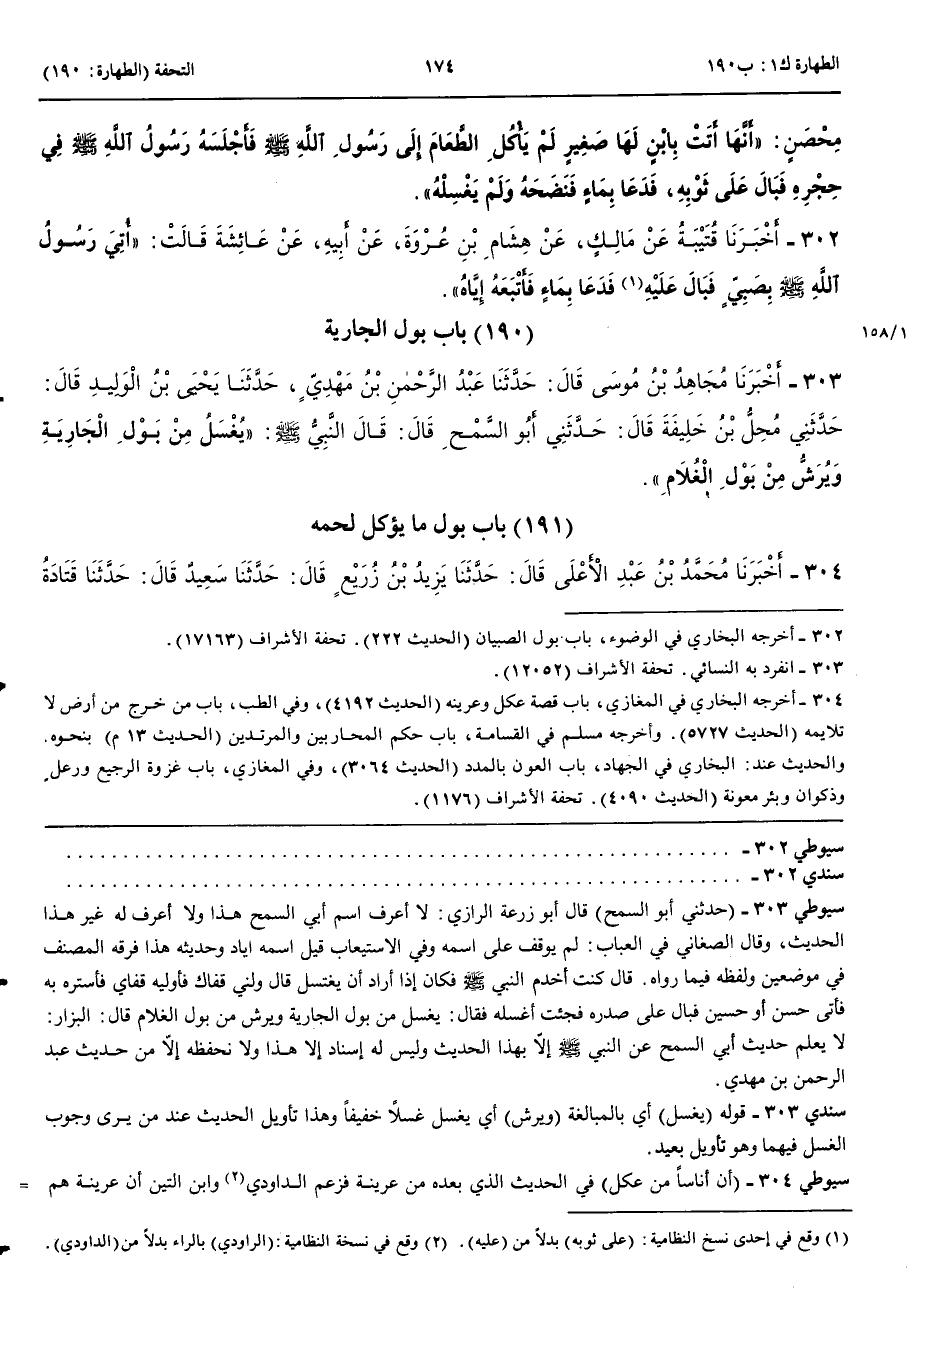 الطهارة ك١: ب١٩٠ ١٧٤ التحفة (الطهارة: ١٩٠)
مِحْصَنٍ: «أَنَّهَا أَتَتْ بِابْنٍ لَهَا صَغِيرٍ لَمْ يَأْكُلِ الطَّعَامَ إِلَى رَسُولِ اللَّهِ ﷺ فَأَجْلَسَهُ رَسُولُ اللَّهِ ﷺ فِي
حِجْرِهِ فَبَالَ عَلَى ثَوْبِهِ، فَدَعَا بِمَاءٍ فَنَضَحَهُ وَلَمْ يَغْسِلْهُ».
٣٠٢ - أَخْبَرَنَا قُتَيْبَةُ عَنْ مَالِكٍ، عَنْ هِشَامِ بْنِ عُرْوَةَ، عَنْ أَبِيهِ، عَنْ عَائِشَةَ قَالَتْ: «أُتِيَ رَسُولُ
اللَّهِ ﷺ بِصَبِيٍّ فَبَالَ عَلَيْهِ(١) فَدَعَا بِمَاءٍ فَأَتْبَعَهُ إِيَّاهُ».
(١٩٠) باب بول الجارية
١٥٨/١
٣٠٣ - أَخْبَرَنَا مُجَاهِدُ بْنُ مُوسَى قَالَ: حَدَّثَنَا عَبْدُ الرَّحْمٰنِ بْنُ مَهْدِيٍّ، حَدَّثَنَا يَحْيَى بْنُ الْوَلِيدِ قَالَ:
حَدَّثَنِي مُحِلُّ بْنُ خَلِيفَةَ قَالَ: حَدَّثَنِي أَبُو السَّمْحِ قَالَ: قَالَ النَّبِيُّ ﷺ: «يُغْسَلُ مِنْ بَوْلِ الْجَارِيَةِ
وَيُرَشُّ مِنْ بَوْلِ الْغُلَامِ».
(١٩١) باب بول ما يؤكل لحمه
٣٠٤ - أَخْبَرَنَا مُحَمَّدُ بْنُ عَبْدِ الْأَعْلَى قَالَ: حَدَّثَنَا يَزِيدُ بْنُ زُرَيْعٍ قَالَ: حَدَّثَنَا سَعِيدٌ قَالَ: حَدَّثَنَا قَتَادَةُ
٣٠٢ - أخرجه البخاري في الوضوء، باب بول الصبيان (الحديث ٢٢٢). تحفة الأشراف (١٧١٦٣).
٣٠٣ - انفرد به النسائي. تحفة الأشراف (١٢٠٥٢).
٣٠٤ - أخرجه البخاري في المغازي، باب قصة عكل وعرينه (الحديث ٤١٩٢)، وفي الطب، باب من خرج من أرض لا
تلايمه (الحديث ٥٧٢٧). وأخرجه مسلم في القسامة، باب حكم المحاربين والمرتدين (الحديث ١٣ م) بنحوه.
والحديث عند: البخاري في الجهاد، باب العون بالمدد (الحديث ٣٠٦٤)، وفي المغازي، باب غزوة الرجيع ورعل
وذكوان وبئر معونة (الحديث ٤٠٩٠). تحفة الأشراف (١١٧٦).
سيوطي ٣٠٢ - . . . . . . . . . . . . . . . . . . . . . . . . . . . . . .
سندي ٣٠٢ - . . . . . . . . . . . . . . . . . . . . . . . . . . . . . .
سيوطي ٣٠٣ - (حدثني أبو السمح) قال أبو زرعة الرازي: لا أعرف اسم أبي السمح هذا ولا أعرف له غير هذا
الحديث، وقال الصغاني في العباب: لم يوقف على اسمه وفي الاستيعاب قيل اسمه اياد وحديثه هذا فرقه المصنف
في موضعين ولفظه فيما رواه. قال كنت أخدم النبي ﷺ فكان إذا أراد أن يغتسل قال ولني قفاك فأوليه قفاي فأستره به
فأتى حسن أو حسين فبال على صدره فجئت أغسله فقال: يغسل من بول الجارية ويرش من بول الغلام قال: البزار:
لا يعلم حديث أبي السمح عن النبي ﷺ إلّا بهذا الحديث وليس له إسناد إلا هذا ولا نحفظه إلّا من حديث عبد
الرحمن بن مهدي.
سندي ٣٠٣ - قوله (يغسل) أي بالمبالغة (ويرش) أي يغسل غسلاً خفيفاً وهذا تأويل الحديث عند من يرى وجوب
الغسل فيهما وهو تأويل بعيد.
سيوطي ٣٠٤ - (أن أناساً من عكل) في الحديث الذي بعده من عرينة فزعم الداودي(٢) وابن التين أن عرينة هم =
(١) وقع في إحدى نسخ النظامية: (على ثوبه) بدلاً من (عليه). (٢) وقع في نسخة النظامية: (الراودي) بالراء بدلاً من (الداودي).